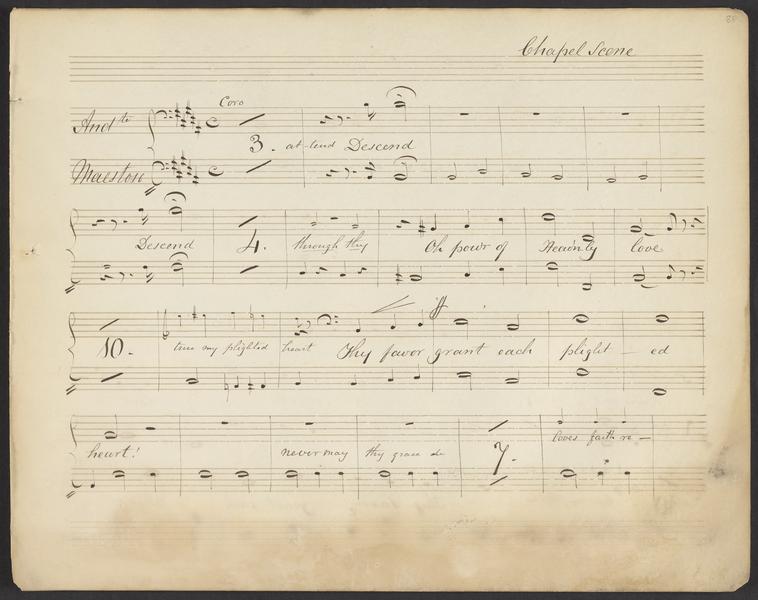 Chapel Scene
Coro
Andte
3. at-tend Descend
Maestoso
Descend 4. through thy Oh pow'r of Heav'nly love
10. true my plighted heart Thy favor grant each plight - ed
heart! never may thy grace de 7. loves faith re -